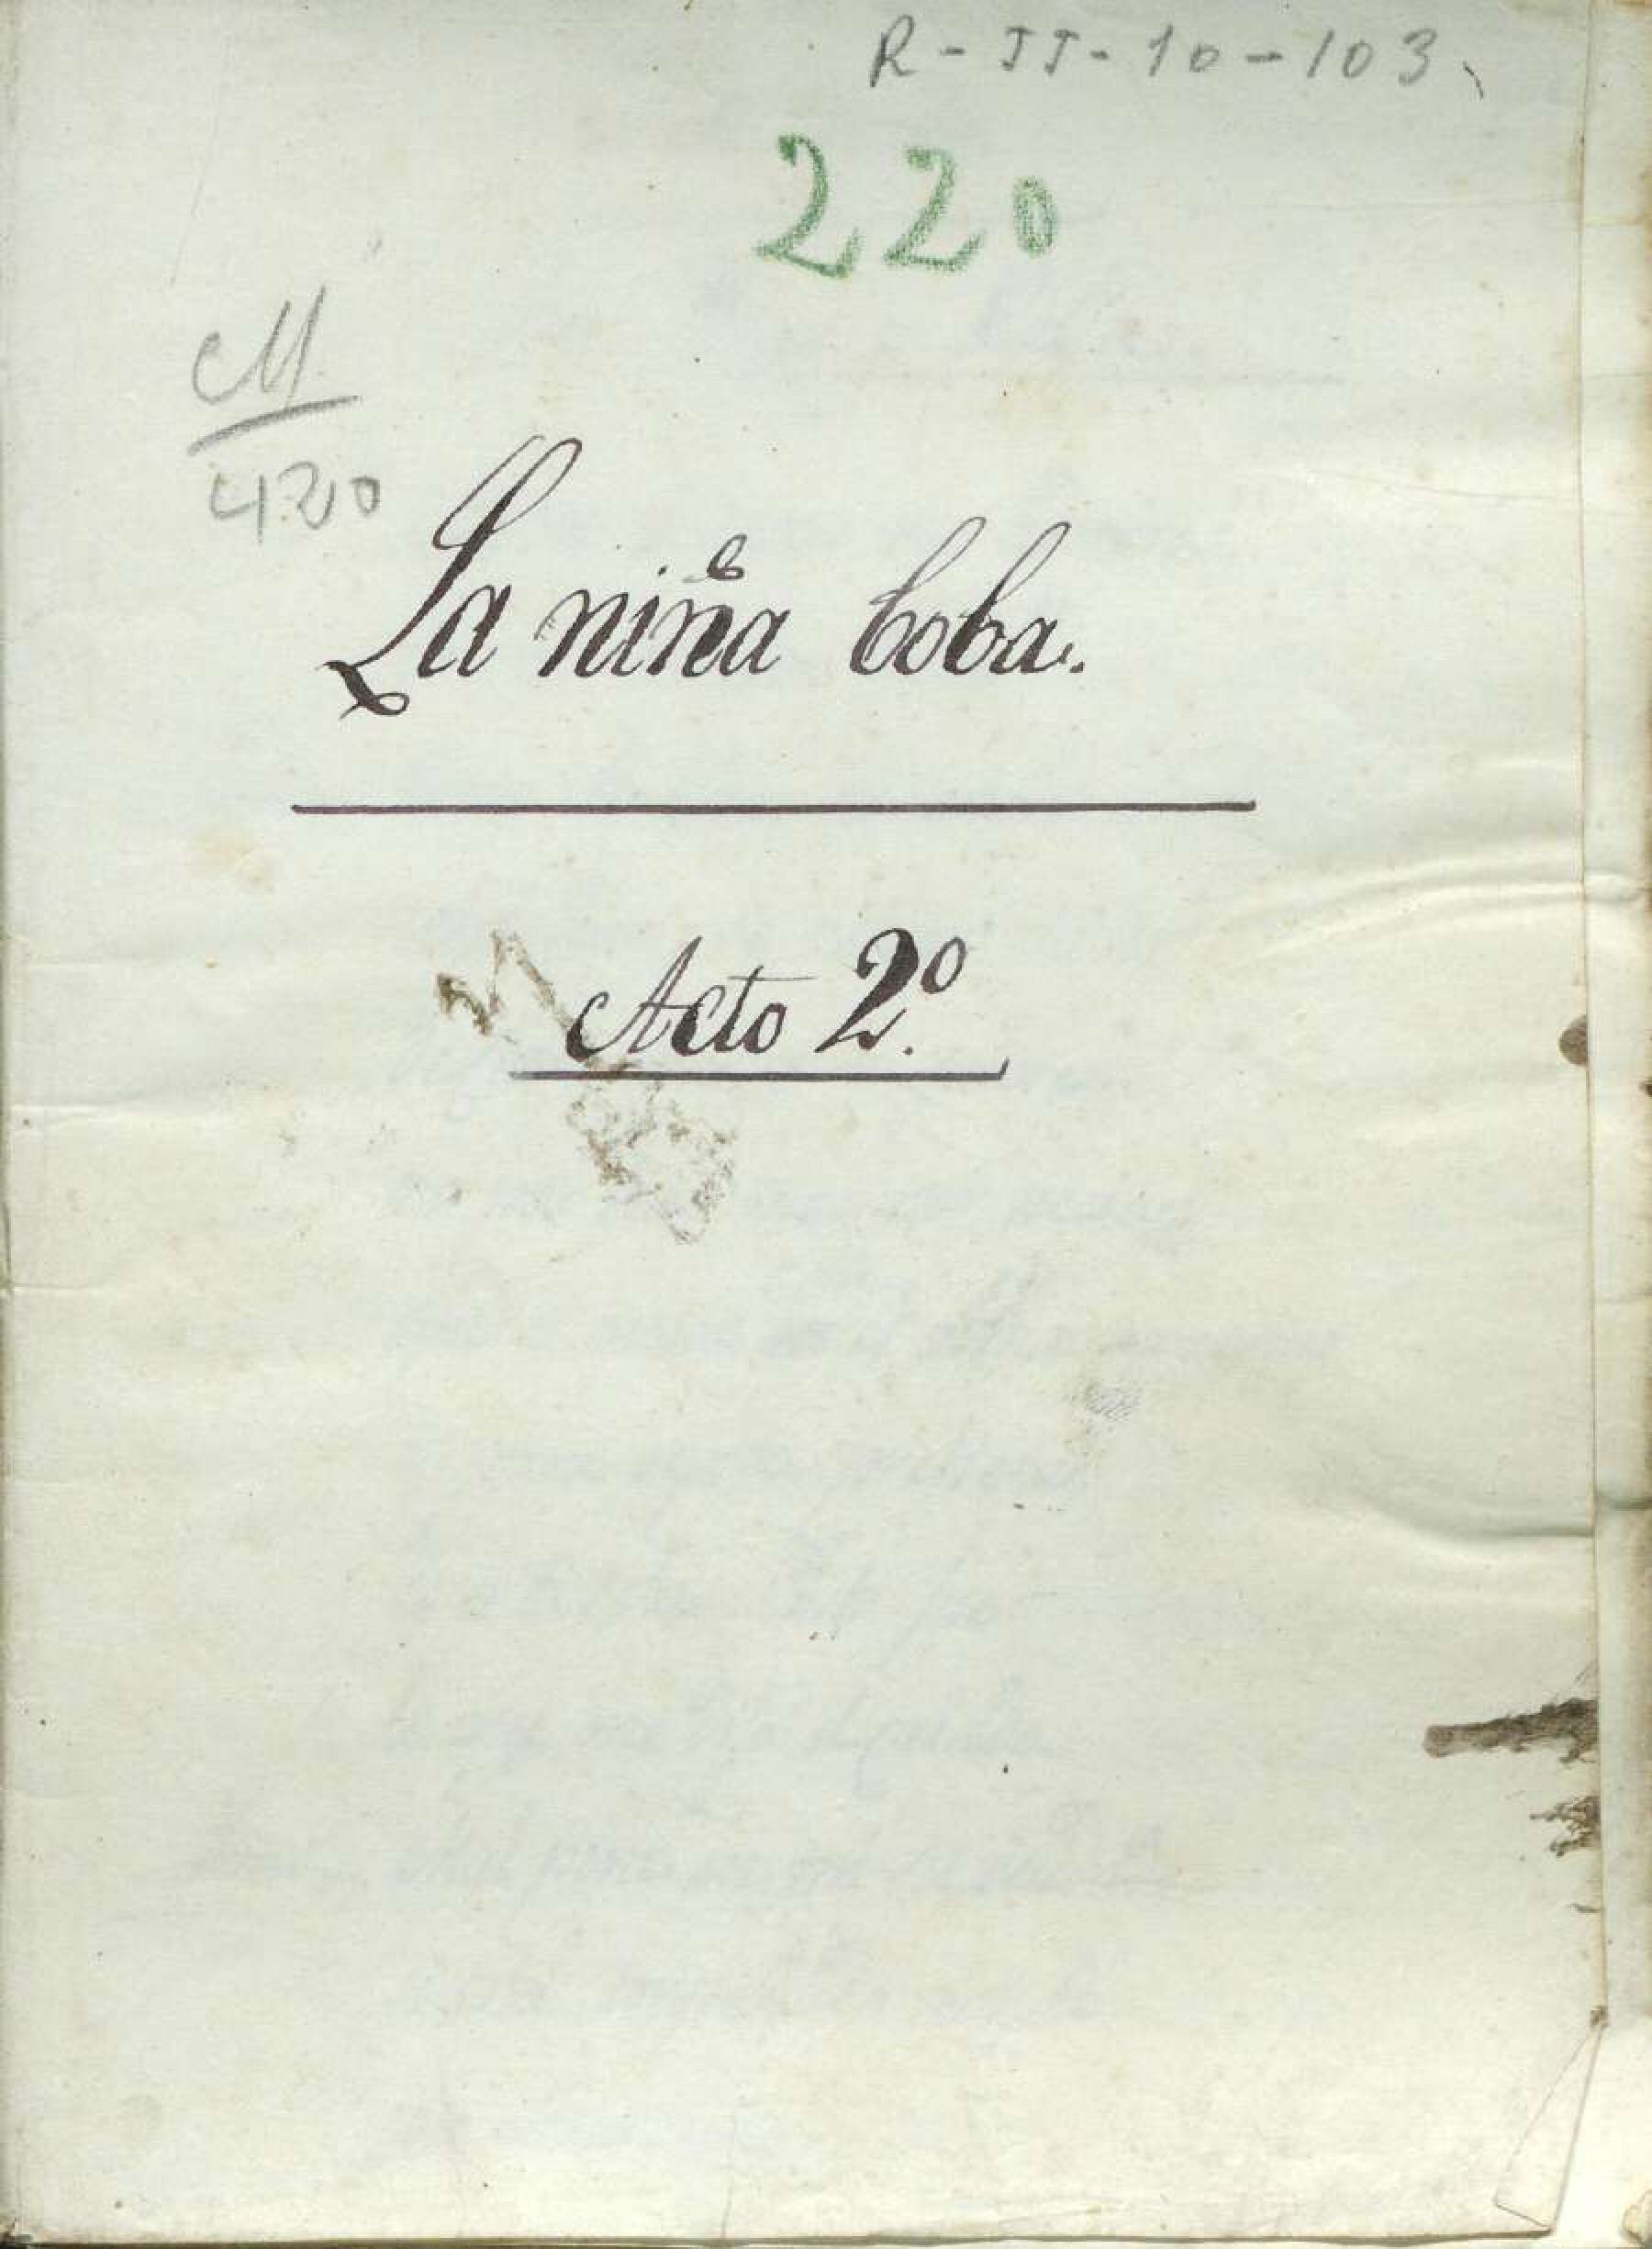 R-JJ-10-103
220
M
420
La niña boba.
Acto 2º.